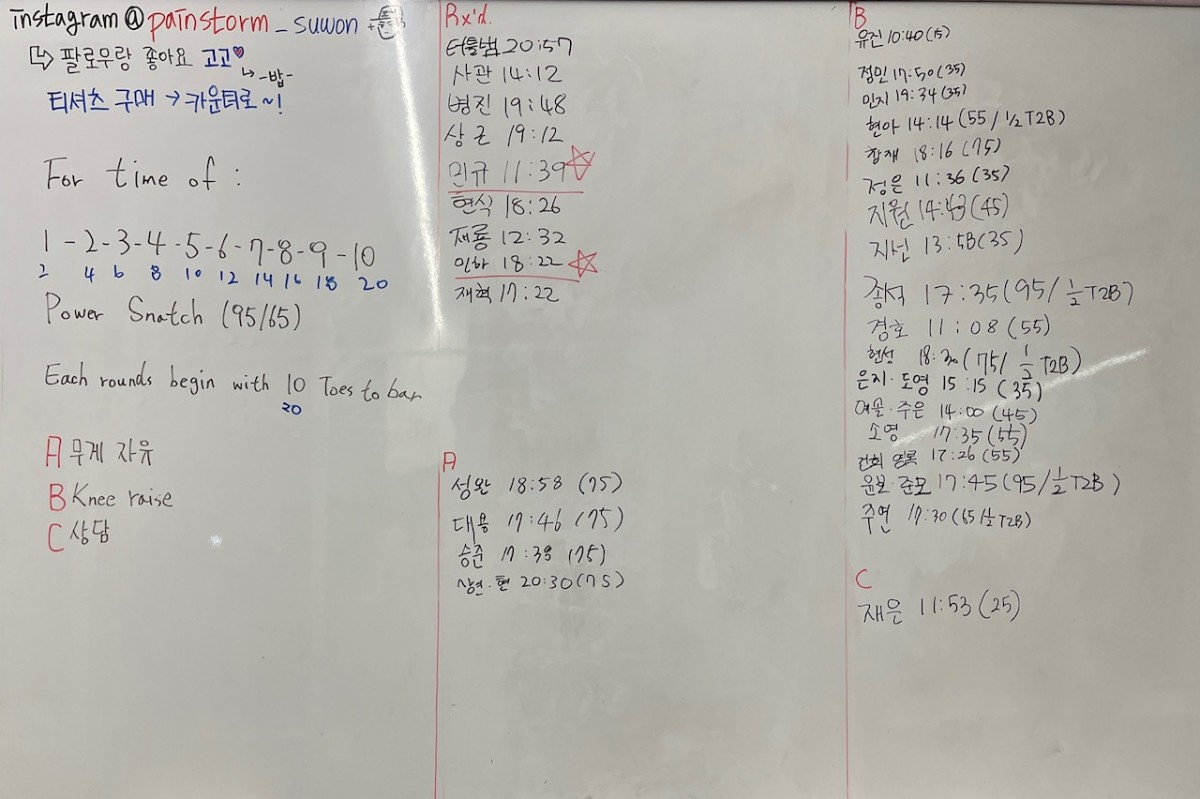 instagram@painstorm_suwon
팔로우랑 좋아요 고고
-밥-
티셔츠 구매 → 카운터로~!
For time of :
1-2-3-4-5-6-7-8-9-10
2 4 6 8 10 12 14 16 18 20
Power Snatch (95/65)
Each rounds begin with 10 Toes to bar
20
A 무게 자유
B Knee raise
C 상담
Rx'd.
터틀범 20:57
사관 14:12
병진 19:48
상근 19:12
민규 11:39
현식 18:26
재룡 12:32
인하 18:22
재혁 17:22
A
성완 18:58 (75)
대용 17:46 (75)
승준 17:39 (75)
상현·현 20:30 (75)
B
유진 10:40 (15)
정민 17:50 (35)
민지 19:34 (35)
현아 14:14 (55/ 1/2 T2B)
창재 18:16 (75)
정은 11:36 (35)
지원 14:43 (45)
지선 13:58 (35)
종석 17:35 (95/ 1/2 T2B)
경호 11:08 (55)
현성 18:30 (75/ 1/2 T2B)
은지·도영 15:15 (35)
여울·주은 14:00 (45)
소영 17:35 (55)
건희 17:26 (55)
윤보·준모 17:45 (95/ 1/2 T2B)
주연 17:30 (65/ 1/2 T2B)
C
재은 11:53 (25)